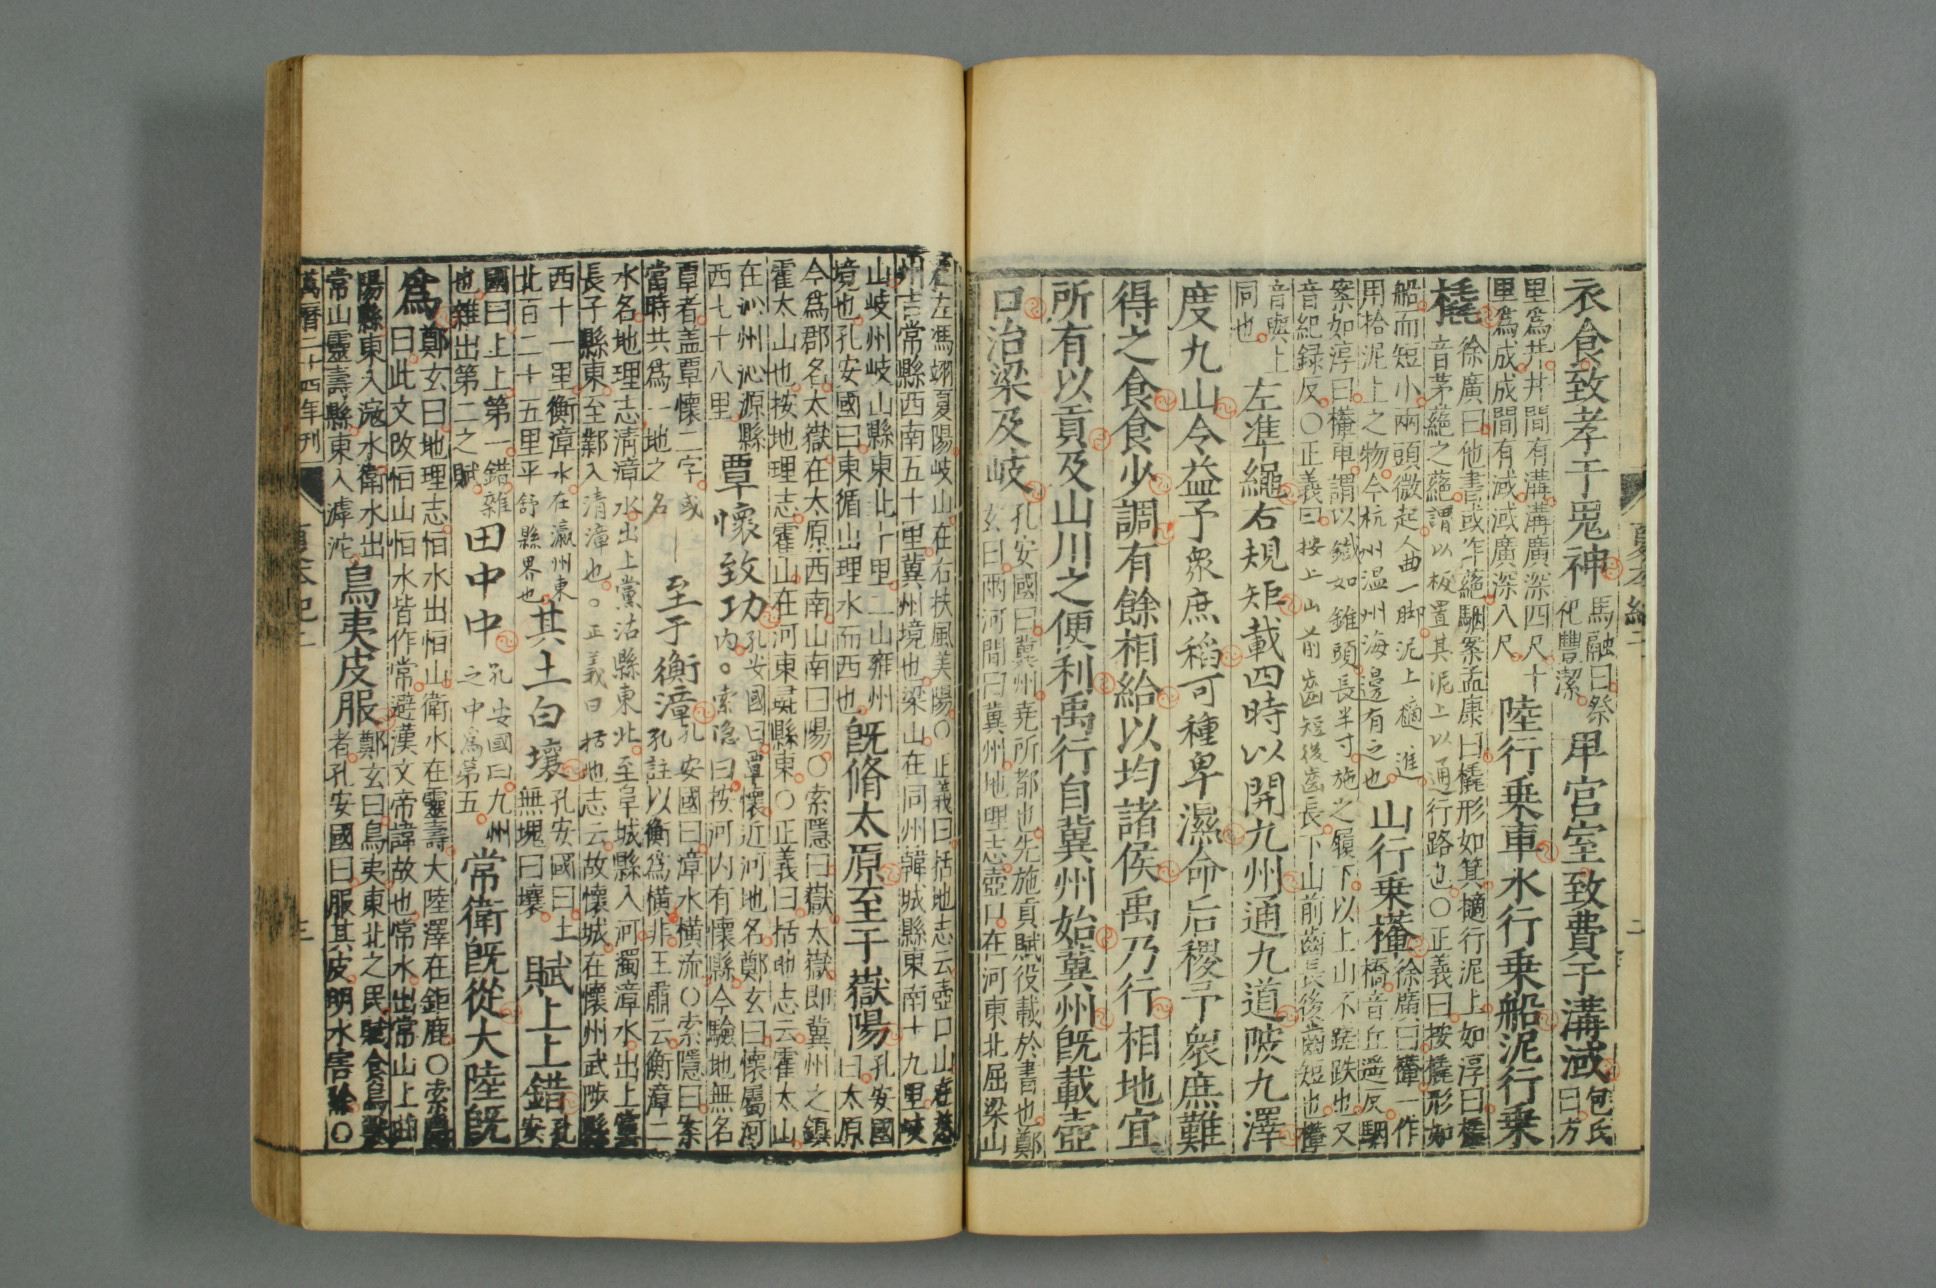 夏本紀二 二
衣食致孝于鬼神 馬融曰祭
祀豐潔 卑宮室致費于溝淢 包氏
曰方
里爲井井間有溝溝廣深四尺十
里爲成成間有淢淢廣深八尺 陸行乘車水行乘船泥行乘
橇 徐廣曰他書或作蕝駰案孟康曰橇形如箕擿行泥上如淳曰橇
音茅蕝之蕝謂以板置其泥上以通行路也○正義曰按橇形如
船而短小兩頭微起人曲一脚泥上擿進
用拾泥上之物今杭州温州海邊有之也 山行乘檋 徐廣曰檋一作
橋音丘遥反駰
案如淳曰檋車謂以鐵如錐頭長半寸施之履下以上山不蹉跌也又
音紀録反○正義曰按上山前齒短後齒長下山前齒長後齒短也檋
音與上
同也 左準繩右規矩載四時以開九州通九道陂九澤
度九山令益予衆庶稻可種卑濕命后稷予衆庶難
得之食食少調有餘相給以均諸侯禹乃行相地宜
所有以貢及山川之便利禹行自冀州始冀州既載壺
口治梁及岐 孔安國曰冀州堯所都也先施貢賦役載於書也鄭
玄曰兩河間曰冀州地理志壺口在河東北屈梁山
在左馮翊夏陽岐山在右扶風美陽○正義曰括地志云壺口山在慈
州吉常縣西南五十里冀州境也梁山在同州韓城縣東南十九里岐
山岐州岐山縣東北十里二山雍州
境也孔安國曰東循山理水而西也 既脩太原至于嶽陽 孔安國
曰太原
今爲郡名太嶽在太原西南山南曰陽○索隱曰嶽太嶽即冀州之鎮
霍太山也按地理志霍山在河東彘縣東○正義曰括地志云霍太山
在沁州沁源縣
西七十八里 覃懷致功 孔安國曰覃懷近河地名鄭玄曰懷屬河
內○索隱曰按河內有懷縣今驗地無名
覃者盖覃懷二字或
當時共爲一地之名 至于衡漳 孔安國曰漳水橫流○索隱曰案
孔註以衡爲橫非王肅云衡漳二
水名地理志清漳水出上黨沾縣東北至阜城縣入河濁漳水出上黨
長子縣東至鄴入清漳也○正義曰括地志云故懷城在懷州武陟縣
西十一里衡漳水在瀛州東
北百二十五里平舒縣界也 其土白壤 孔安國曰土
無塊曰壤 賦上上錯 孔
安
國曰上上第一錯雜
也雜出第二之賦 田中中 孔安國曰九州
之中爲第五 常衛既從大陸既
爲 鄭玄曰地理志恒水出恒山衛水在靈壽大陸澤在鉅鹿○索隱
曰此文改恒山恒水皆作常避漢文帝諱故也常水出常山上曲
陽縣東入滱水衛水出
常山靈壽縣東入滹沱 鳥夷皮服 鄭玄曰鳥夷東北之民賦食鳥獸
者孔安國曰服其皮明水害除○
萬曆二十四年刊 夏本紀二 三